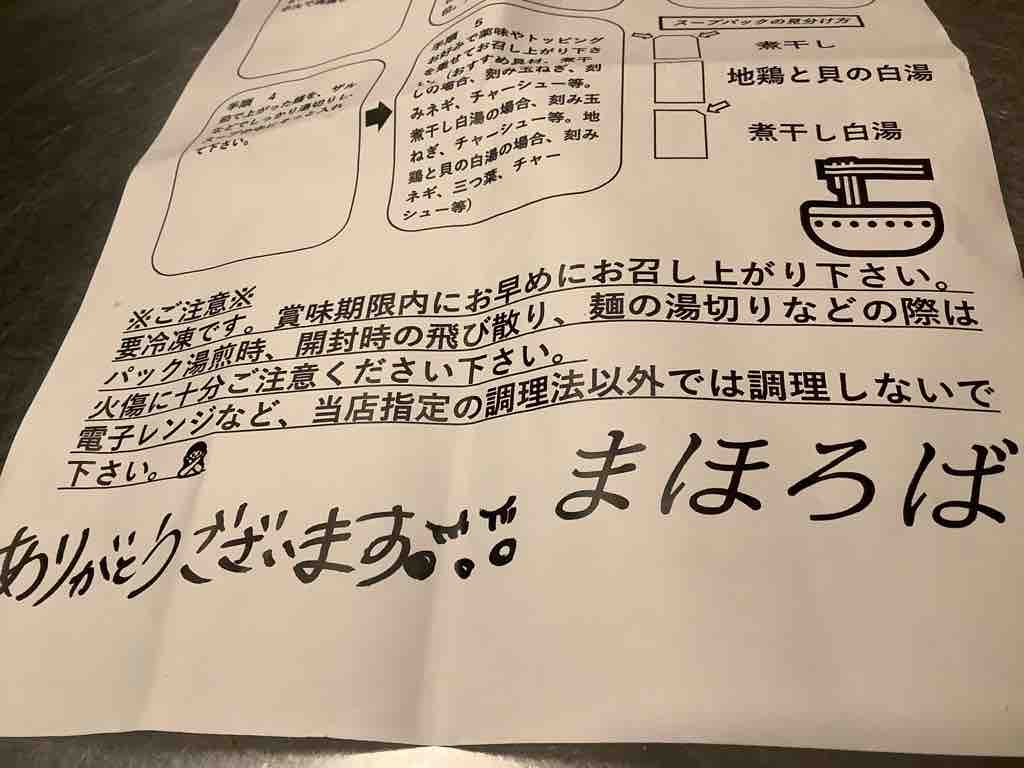 スープパックの見分け方
煮干し
地鶏と貝の白湯
煮干し白湯
手順 4
茹で上がった麺を、ザル
などでしっかり湯切りし
て下さい。
手順 5
お好みで薬味やトッピング
を乗せてお召し上がり下さ
い。（おすすめ具材、煮干
しの場合、刻み玉ねぎ、刻
みネギ、チャーシュー等。
煮干し白湯の場合、刻み玉
ねぎ、チャーシュー等。地
鶏と貝の白湯の場合、刻み
ネギ、三つ葉、チャー
シュー等)
※ご注意※
要冷凍です。賞味期限内にお早めにお召し上がり下さい。
パック湯煎時、開封時の飛び散り、麺の湯切りなどの際は
火傷に十分ご注意ください下さい。
電子レンジなど、当店指定の調理法以外では調理しないで
下さい。
まほろば
ありがとうございます